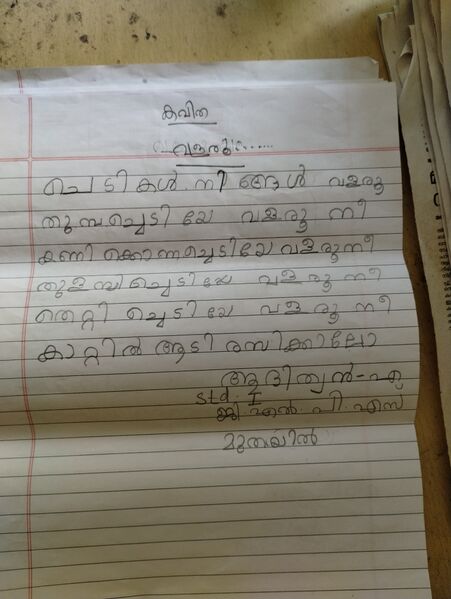 കവിത
(...വളരൂ:......
ചെടികൾ നിങ്ങൾ വളരൂ
തുമ്പച്ചെടിയേ വളരൂ നീ
കണിക്കൊന്നച്ചെടിയേ വളരൂ നീ
തുളസിച്ചെടിയേ വളരൂ നീ
തെറ്റിച്ചെടിയേ വളരൂ നീ
കാറ്റിൽ ആടി രസിക്കാലോ
ആദിത്യൻ-എ
std. I
ജി.എൽ.പി.എസ്
മുതയിൽ